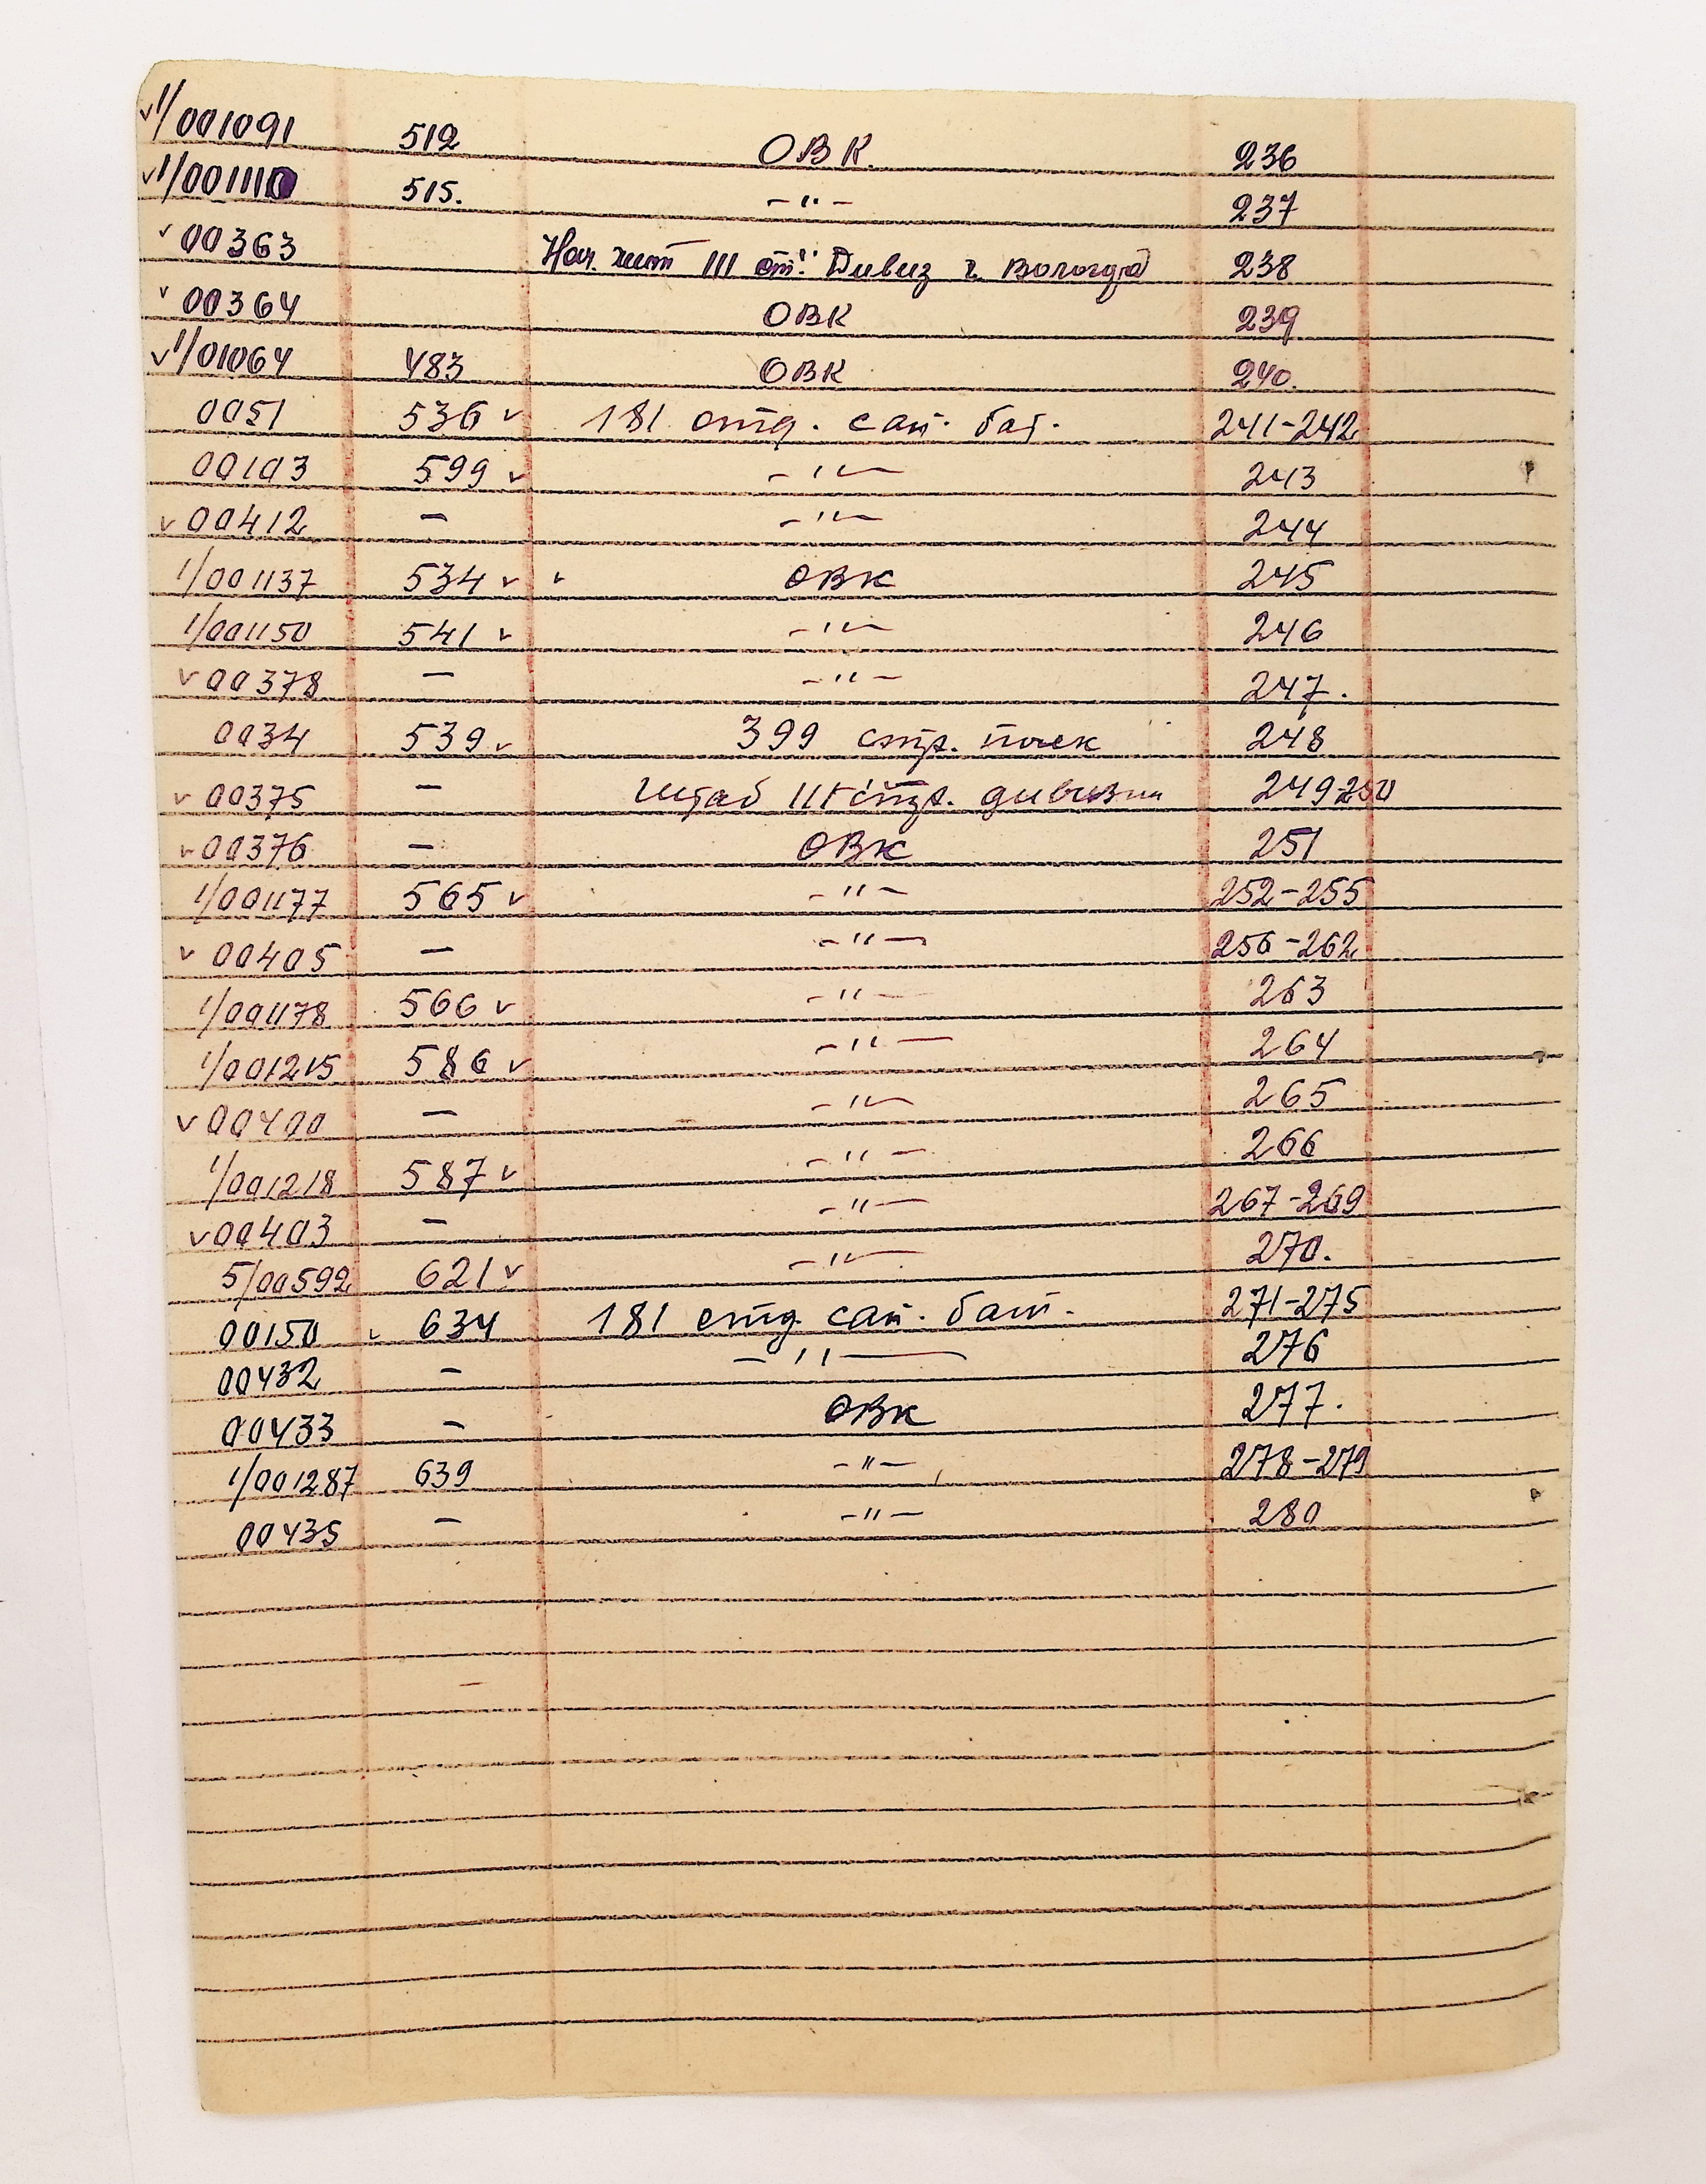 ✓1/001091 512 ОВК. 236
✓1/001110 515. -"- 237
✓00363 Нач. 111 Дивиз г. Вологда 238
✓00364 ОВК 239
✓1/01064 483 ОВК 240.
0051 536 ✓ 181 отд. сап. бат. 241-242
00103 599 ✓ -"- 243
✓00412 — -"- 244
1/001137 534 ✓ ✓ ОВК 245
1/001150 541 ✓ -"- 246
✓00378 — -"- 247.
0034 539 ✓ 399 стр. полк 248
✓00375 — Штаб 111 стр. дивизии 249 250
✓00376 — ОВК 251
1/001177 565 ✓ -"- 252-255
✓00405 — -"- 256-262
1/001178 566 ✓ -"- 263
1/001215 586 ✓ -"- 264
✓00400 — -"- 265
1/001218 587 ✓ -"- 266
✓00403 — -"- 267-269
5/00592 621 ✓ -"- 270.
00150 ✓ 634 181 отд. сап. бат. 271-275
00432 — -"- 276
00433 — ОВК 277.
1/001287 639 -"- 278-279
00435 — -"- 280